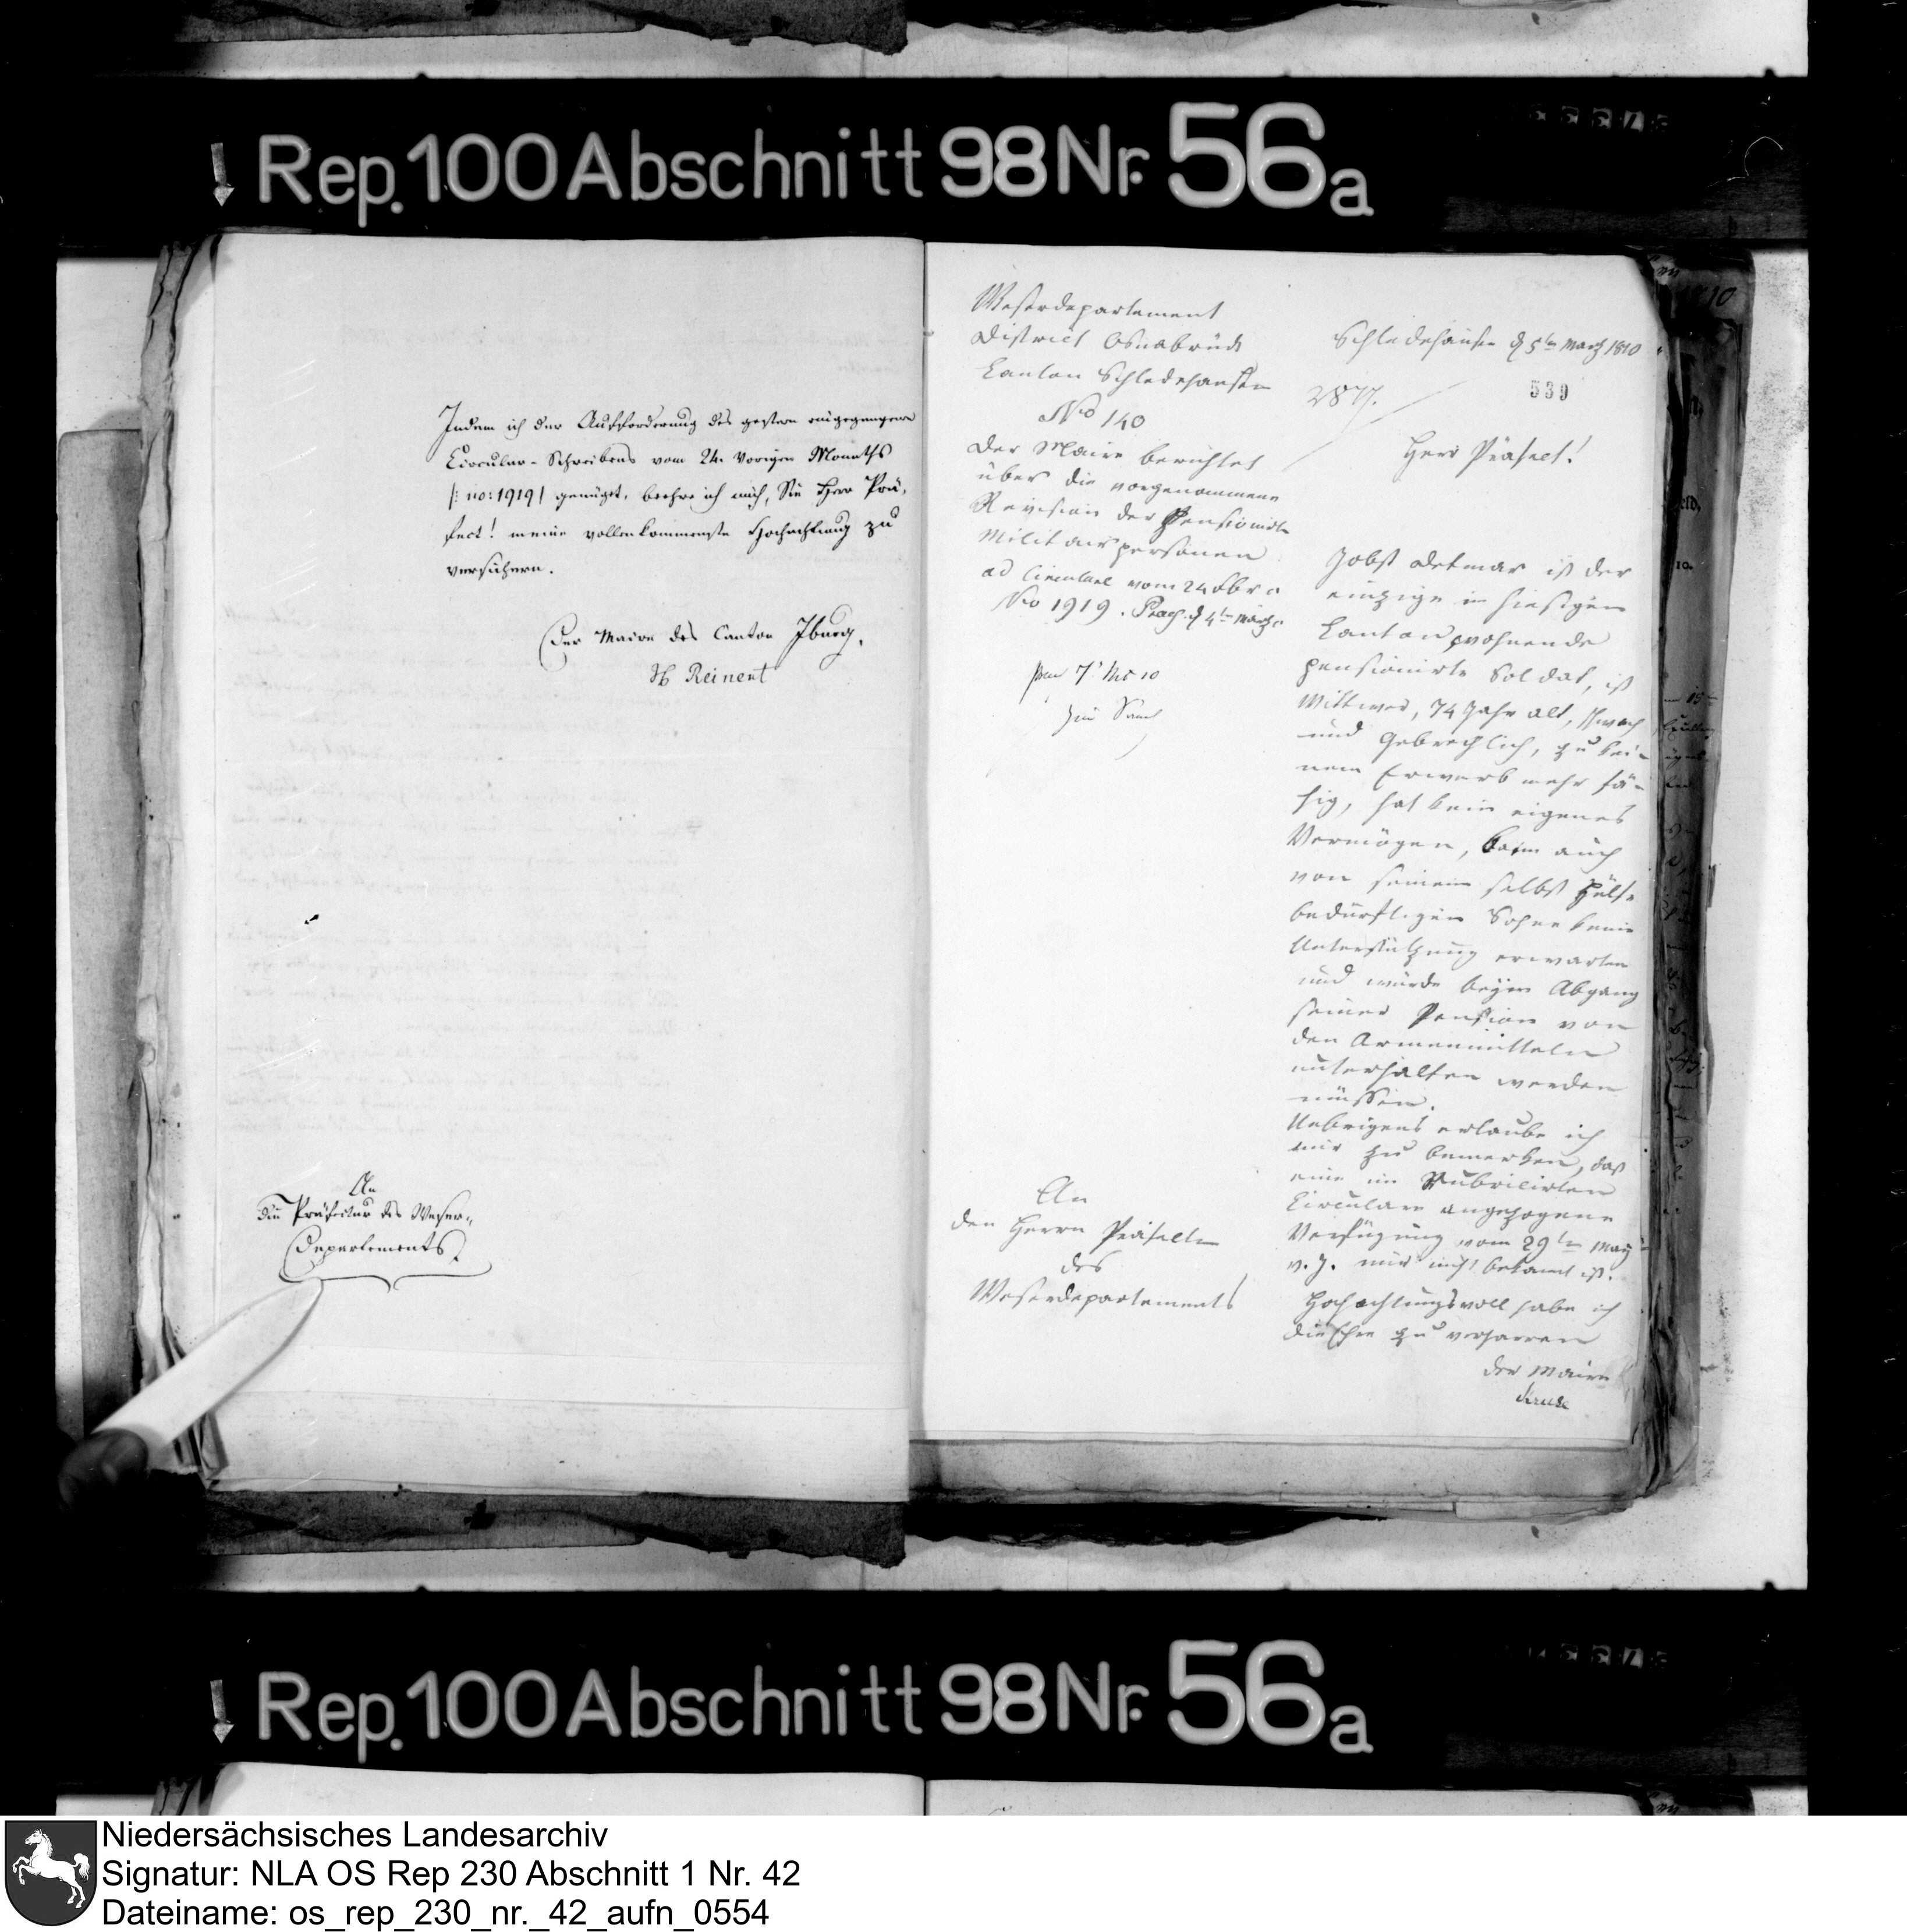 Rep. 100 Abschnitt 98 Nr. 56a
Indem ich der Aufforderung des gestern eingegangenen
Circular-Schreibens vom 24. vorigen Monaths
/: no: 1919/ genüget, beehre ich mich, Sie Herr Prä,
fect! meine vollenkommenste Hochachtung zu
versichern.
Der Maire des Canton Iburg,
Reinert
An
die Präfectur des Weser-
Departements
Weserdepartement
District Osnabrück
Canton Schledehausen
No 140
Der Maire berichtet
über die vorgenommene
Revision der Pensionirte
Militairpersonen
ad Circulare vom 24 Febr
No 1919. Praes. d 4ten März
An
den Herrn Präfecten
des
Weserdepartements
Schledehausen d 5ten März 1810
539
2877.
Herr Präfect!
Jobst Detmar ist der
einzige in hiesigem
Canton wohnende
pensionirte Soldat, ist
Wittwer, 74 Jahr alt, schwach
und Gebrechlich, zu kei-
nem Erwerb mehr fä-
hig, hat kein eigenes
Vermögen, kann auch
von seinem selbst hülfs
bedürftigen Sohne keine
Unterstützung erwarten
und würde beym Abgang
seiner Pension von
den Armenmitteln
unterhalten werden
müssen.
Uebrigens erlaube ich
mir zu bemerken, daß
eine im Rubricirten
Circulare angezogene
Verfügung vom 29ten May
v. J. mir nicht bekannt ist.
Hochachtungsvoll habe ich
die Ehre zu verharren
der Maire
Kruse
Rep. 100 Abschnitt 98 Nr. 56a
Niedersächsisches Landesarchiv
Signatur: NLA OS Rep 230 Abschnitt 1 Nr. 42
Dateiname: os_rep_230_nr._42_aufn_0554